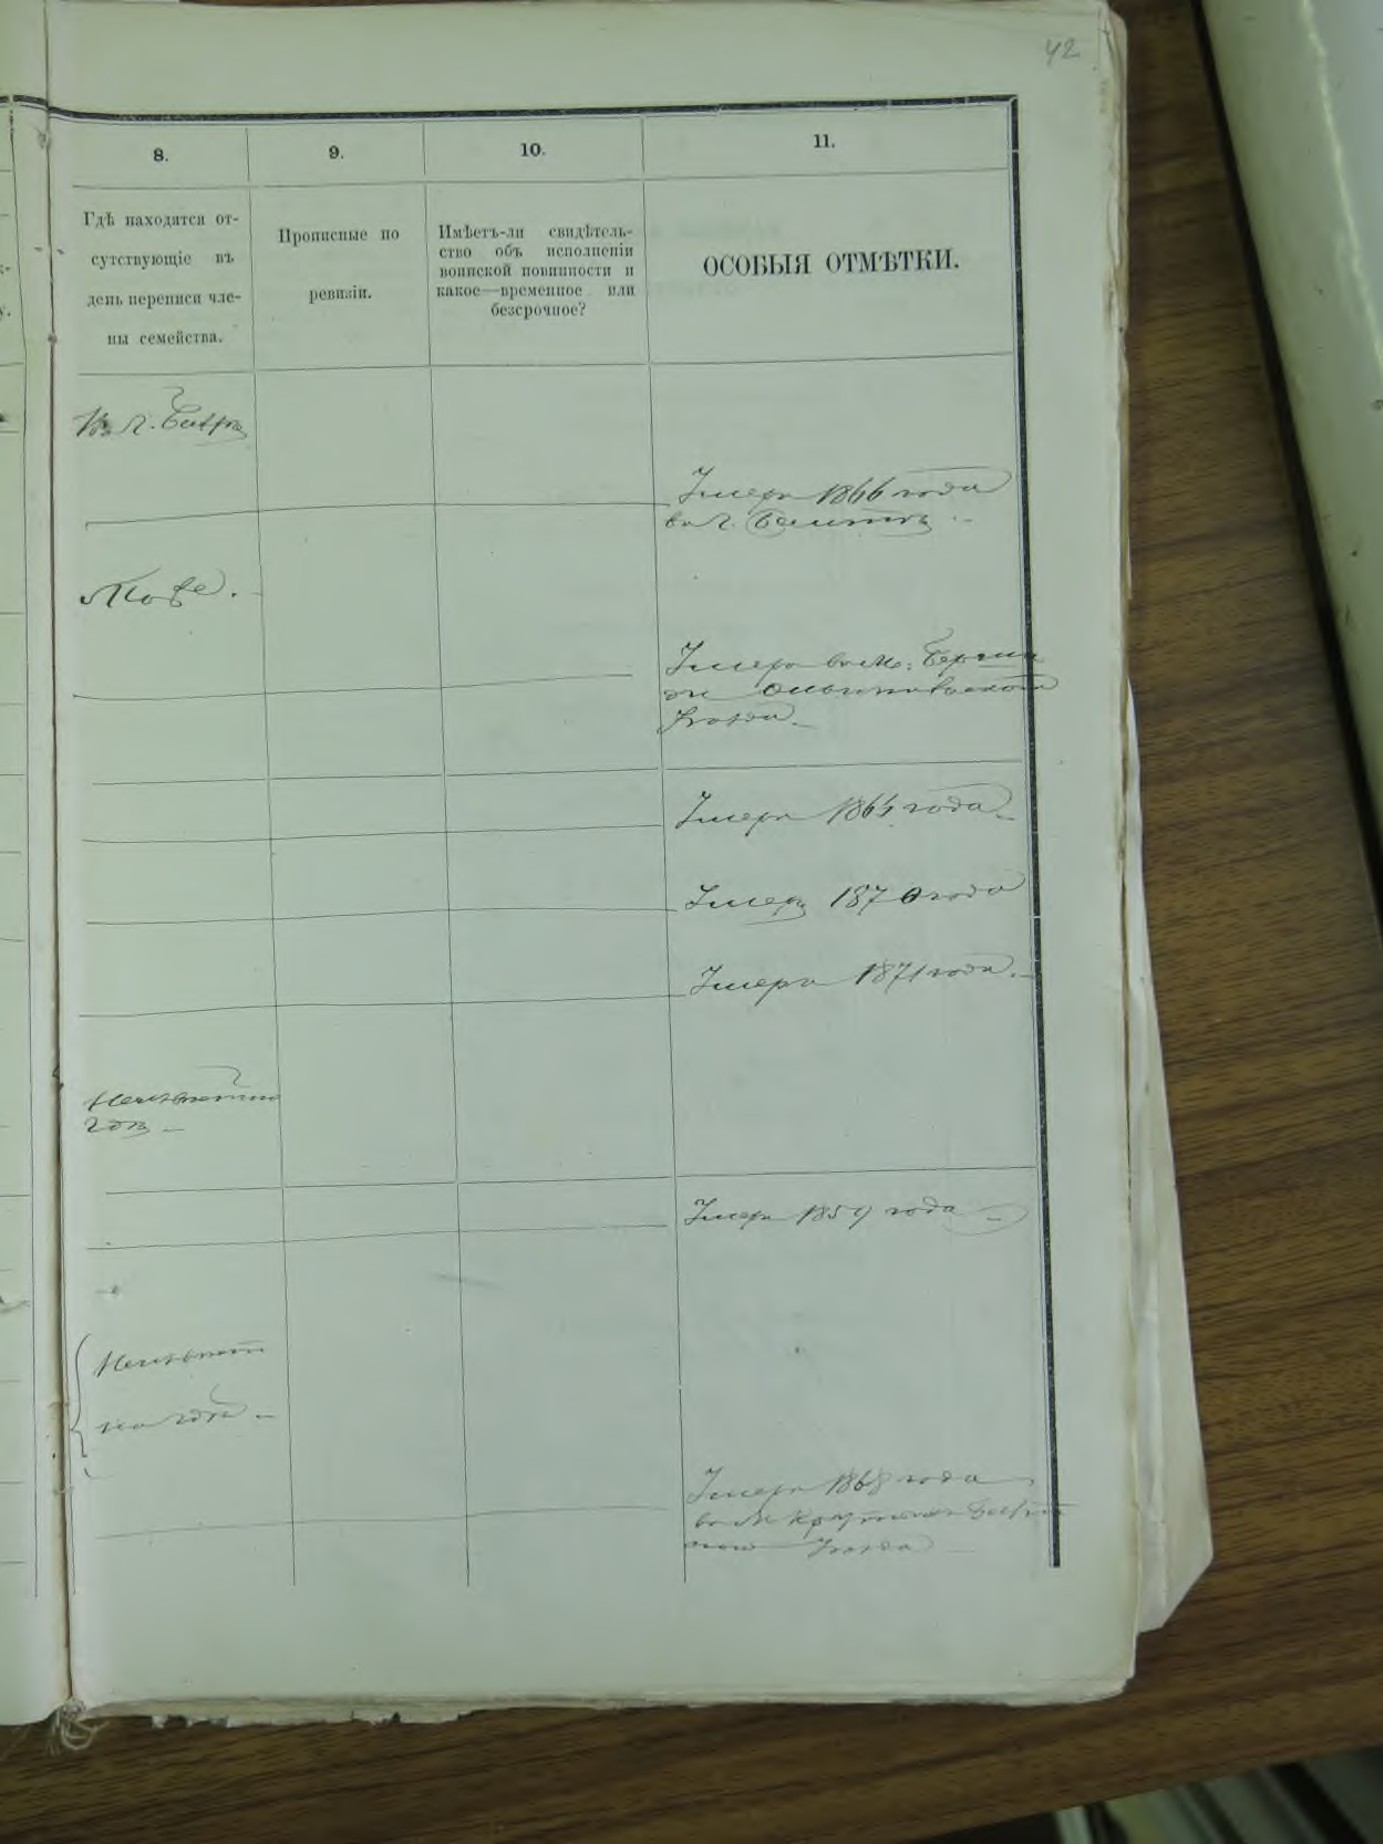 42
8.
9.
10.
11.
Гдѣ находятся от-
сутствующіе въ
день переписи чле-
ны семейства.
Прописные по
ревизіи.
Имѣетъ-ли свидѣтель-
ство объ исполненіи
воинской повинности и
какое—временное или
безсрочное?
ОСОБЫЯ ОТМѢТКИ.
Въ г. Балтѣ
Умеръ 1866 года
въ г.
Тоже.
Умеръ въ м. Берша
ди Ольгопольскаго
уѣзда.
Умеръ 186 года
Умеръ 1870 года
Умеръ 1871 года.
Неизвѣстно
гдѣ
Умеръ 1859 года
Неизвѣст
но гдѣ
Умеръ 1868 года
въ м. Крутыхъ Балт
скаго уѣзда